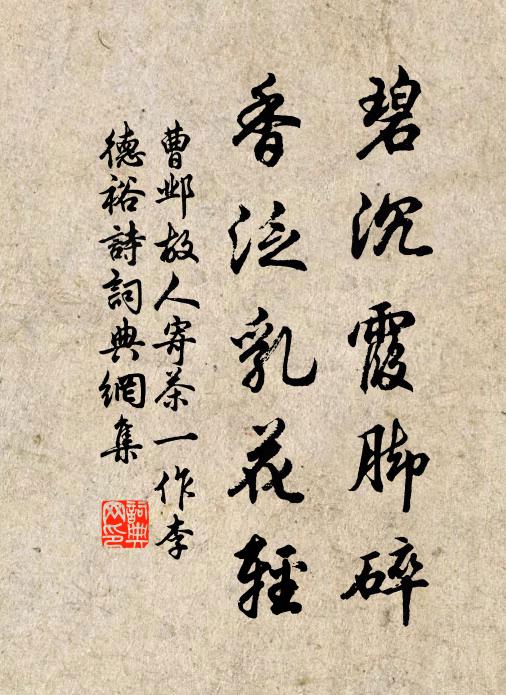 碧沉霞脚碎
香泛乳花輕
曹邺故人寄茶一作李
德裕詩詞典網集
詞典
网印